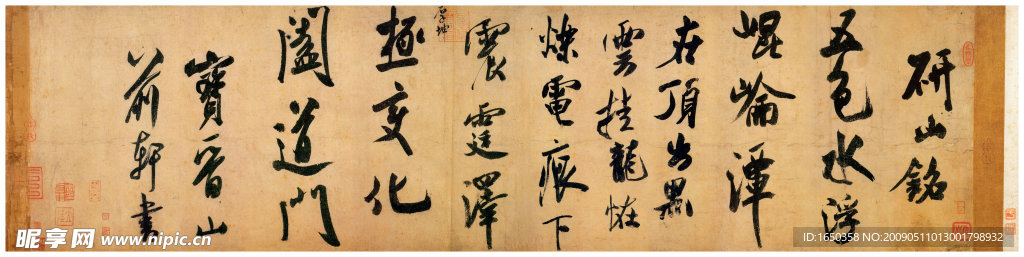 研山銘
五色水浮
崐崘潭
在頂出黑
雲挂龍恠
爍電痕下
震霆澤
厚坤
極变化
闔道門
寶晉山
前軒書
昵享网 www.nipic.cn
ID:1650358 NO:20090511013001798932